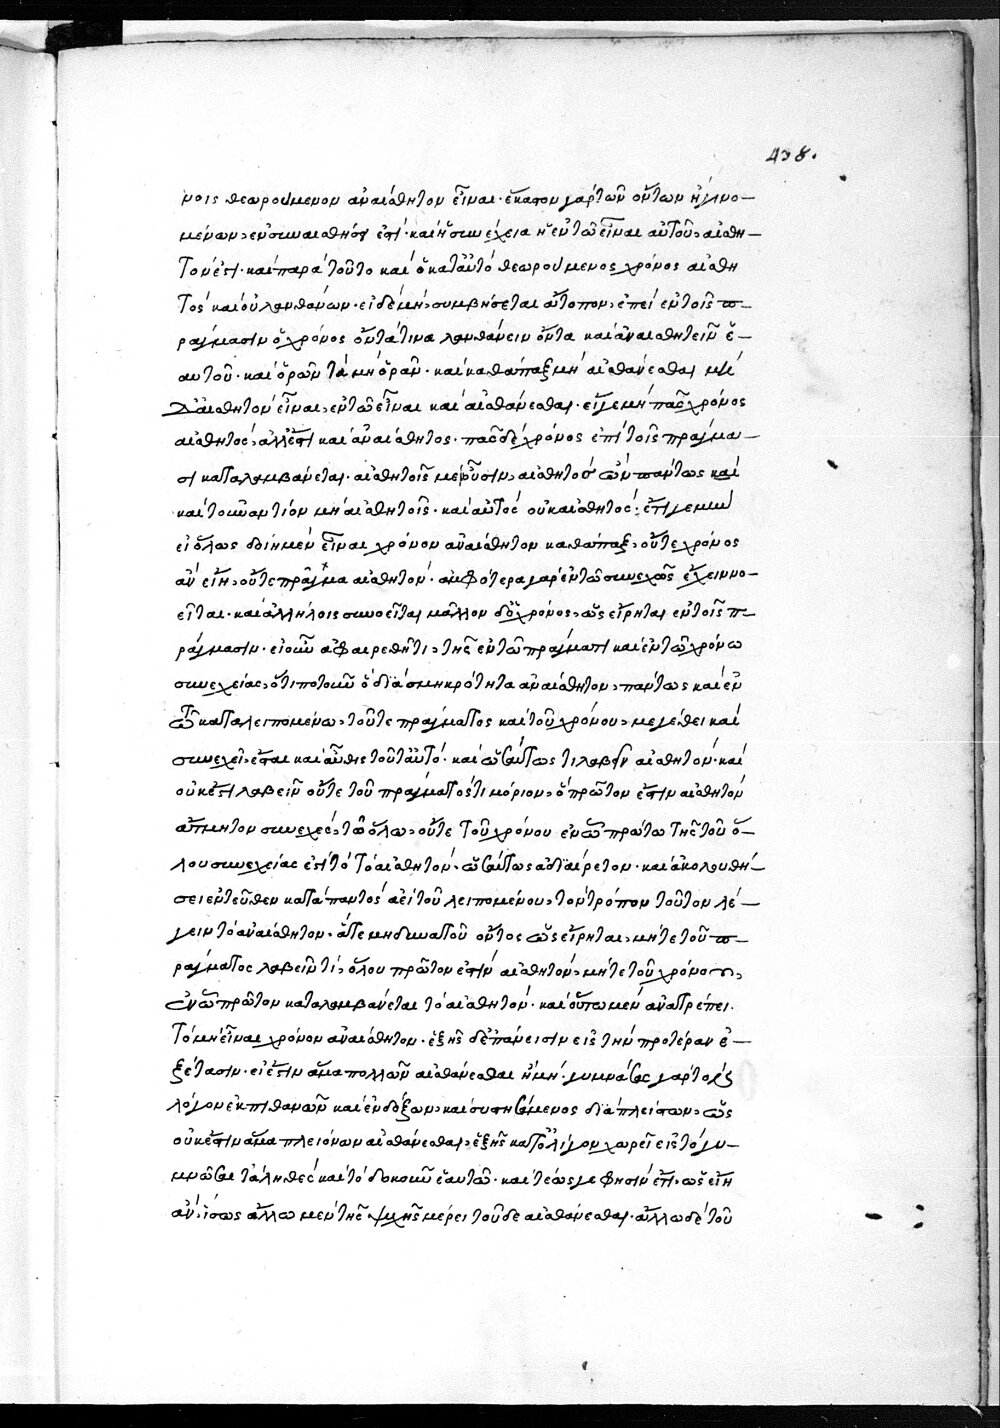 438.
νοις θεωρούμενον ἀναίσθητον εἶναι· ἕκαστον γὰρ τῶν ὄντων ἢ γινο-
μένων, ἐν συναισθήσει ἐστί· καὶ ἡ συνέχεια ἡ ἐν τῷ εἶναι αὐτοῦ, αἰσθη-
τόν ἐστι· καὶ παρὰ τοῦτο καὶ ὁ κατ' αὐτὸ θεωρούμενος χρόνος αἰσθη
τὸς καὶ οὐ λανθάνων· εἰ δὲ μὴ, συμβήσεται ἄτοπον, ἐπεὶ ἐν τοῖς π-
ράγμασιν ὁ χρόνος ὄντά τινα λανθάνειν ὄντα καὶ ἀναισθητεῖν ἑ-
αυτοῦ· καὶ ὁρῶν τὰ μὴ ὁρᾶν· καὶ καθάπαξ μὴ αἰσθάνεσθαι
αἰσθητὸν εἶναι, ἐν τῷ εἶναι καὶ αἰσθάνεσθαι· εἴγε μὴ πᾶς χρόνος
αἰσθητὸς, ἀλλ' ἔστι καὶ ἀναίσθητος· πᾶς δὲ χρόνος ἐπὶ τοῖς πράγμα-
σι καταλαμβάνεται· αἰσθητοῖς μὲν οὖσιν, αἰσθητὸς ὢν πάντως καὶ
καὶ τοὐναντίον μὴ αἰσθητοῖς· καὶ αὐτὸς οὐκ αἰσθητός· ἔτι γε μὴν
εἰ ὅλως δοίημεν εἶναι χρόνον ἀναίσθητον καθάπαξ, οὔτε χρόνος
ἂν εἴη, οὔτε πρᾶγμα αἰσθητόν· ἀμφότερα γὰρ ἐν τῷ συνεχῶς ἔχειν νο-
εῖται· καὶ ἀλλήλοις συνοεῖται μᾶλλον δ' ὁ χρόνος, ὡς εἴρηται ἐν τοῖς π-
ράγμασιν· εἰ οὖν ἀφαιρεθῇ τι, τῆς ἐν τῷ πράγματι καὶ ἐν τῷ χρόνῳ
συνεχείας, ὅτι ποτοῦν ὃ διὰ σμικρότητα ἀναίσθητον, πάντως καὶ ἐν
τῷ καταλειπομένῳ, τοῦ τε πράγματος καὶ τοῦ χρόνου, μεγέθει καὶ
συνεχεῖ, ἔσται καὶ αὖθις τοῦτ' αὐτό· καὶ ὡσαύτως τι λαβεῖν αἰσθητόν· καὶ
οὐκέτι λαβεῖν οὔτε τοῦ πράγματός τι μόριον, ὃ πρῶτον ἔστιν αἰσθητὸν
ἄτμητον συνεχὲς, τῷ ὅλῳ, οὔτε τοῦ χρόνου ἐν ᾧ πρώτῳ τῆς τοῦ ὅ-
λου συνεχείας ἐστὶ τὸ τὸ αἰσθητὸν, ὡσαύτως ἀδιαίρετον· καὶ ἀκολουθή-
σει ἐντεῦθεν κατὰ παντὸς ἀεὶ τοῦ λειπομένου, τὸν τρόπον τοῦτον λέ-
γειν τὸ ἀναίσθητον· ἅτε μὴ δυνατοῦ ὄντος ὡς εἴρηται, μήτε τοῦ π-
ράγματος λαβεῖν τί, ὅλου πρῶτον ἐστὶν αἰσθητὸν, μήτε τοῦ χρόνου,
ἐν ᾧ πρῶτον καταλαμβάνεται τὸ αἰσθητόν· καὶ οὕτω μὲν ἀνατρέπει.
τὸ μὴ εἶναι χρόνον ἀναίσθητον· ἑξῆς δ' ἐπάνεισιν εἰς τὴν προτέραν ἐ-
ξέτασιν· εἰ ἔστιν ἅμα πολλῶν αἰσθάνεσθαι ἢ μή· γυμνάσας γὰρ τοὺς
λόγον ἐκ πιθανῶν καὶ ἐνδόξων, καὶ συστησάμενος διὰ πλείστων, ὡς
οὐκ ἔστιν ἅμα πλειόνων αἰσθάνεσθαι, ἑξῆς κατ' ὀλίγον χωρεῖ εἰς τὸ γυ-
μνῶσαι τἀληθὲς καὶ τὸ δοκοῦν ἑαυτῷ· καὶ τέως γε φησὶν ἔτι, ὡς εἴη
ἂν, ἴσως ἄλλῳ μὲν τῆς ψυχῆς μέρει τοῦδε αἰσθάνεσθαι· ἄλλῳ δὲ τοῦ